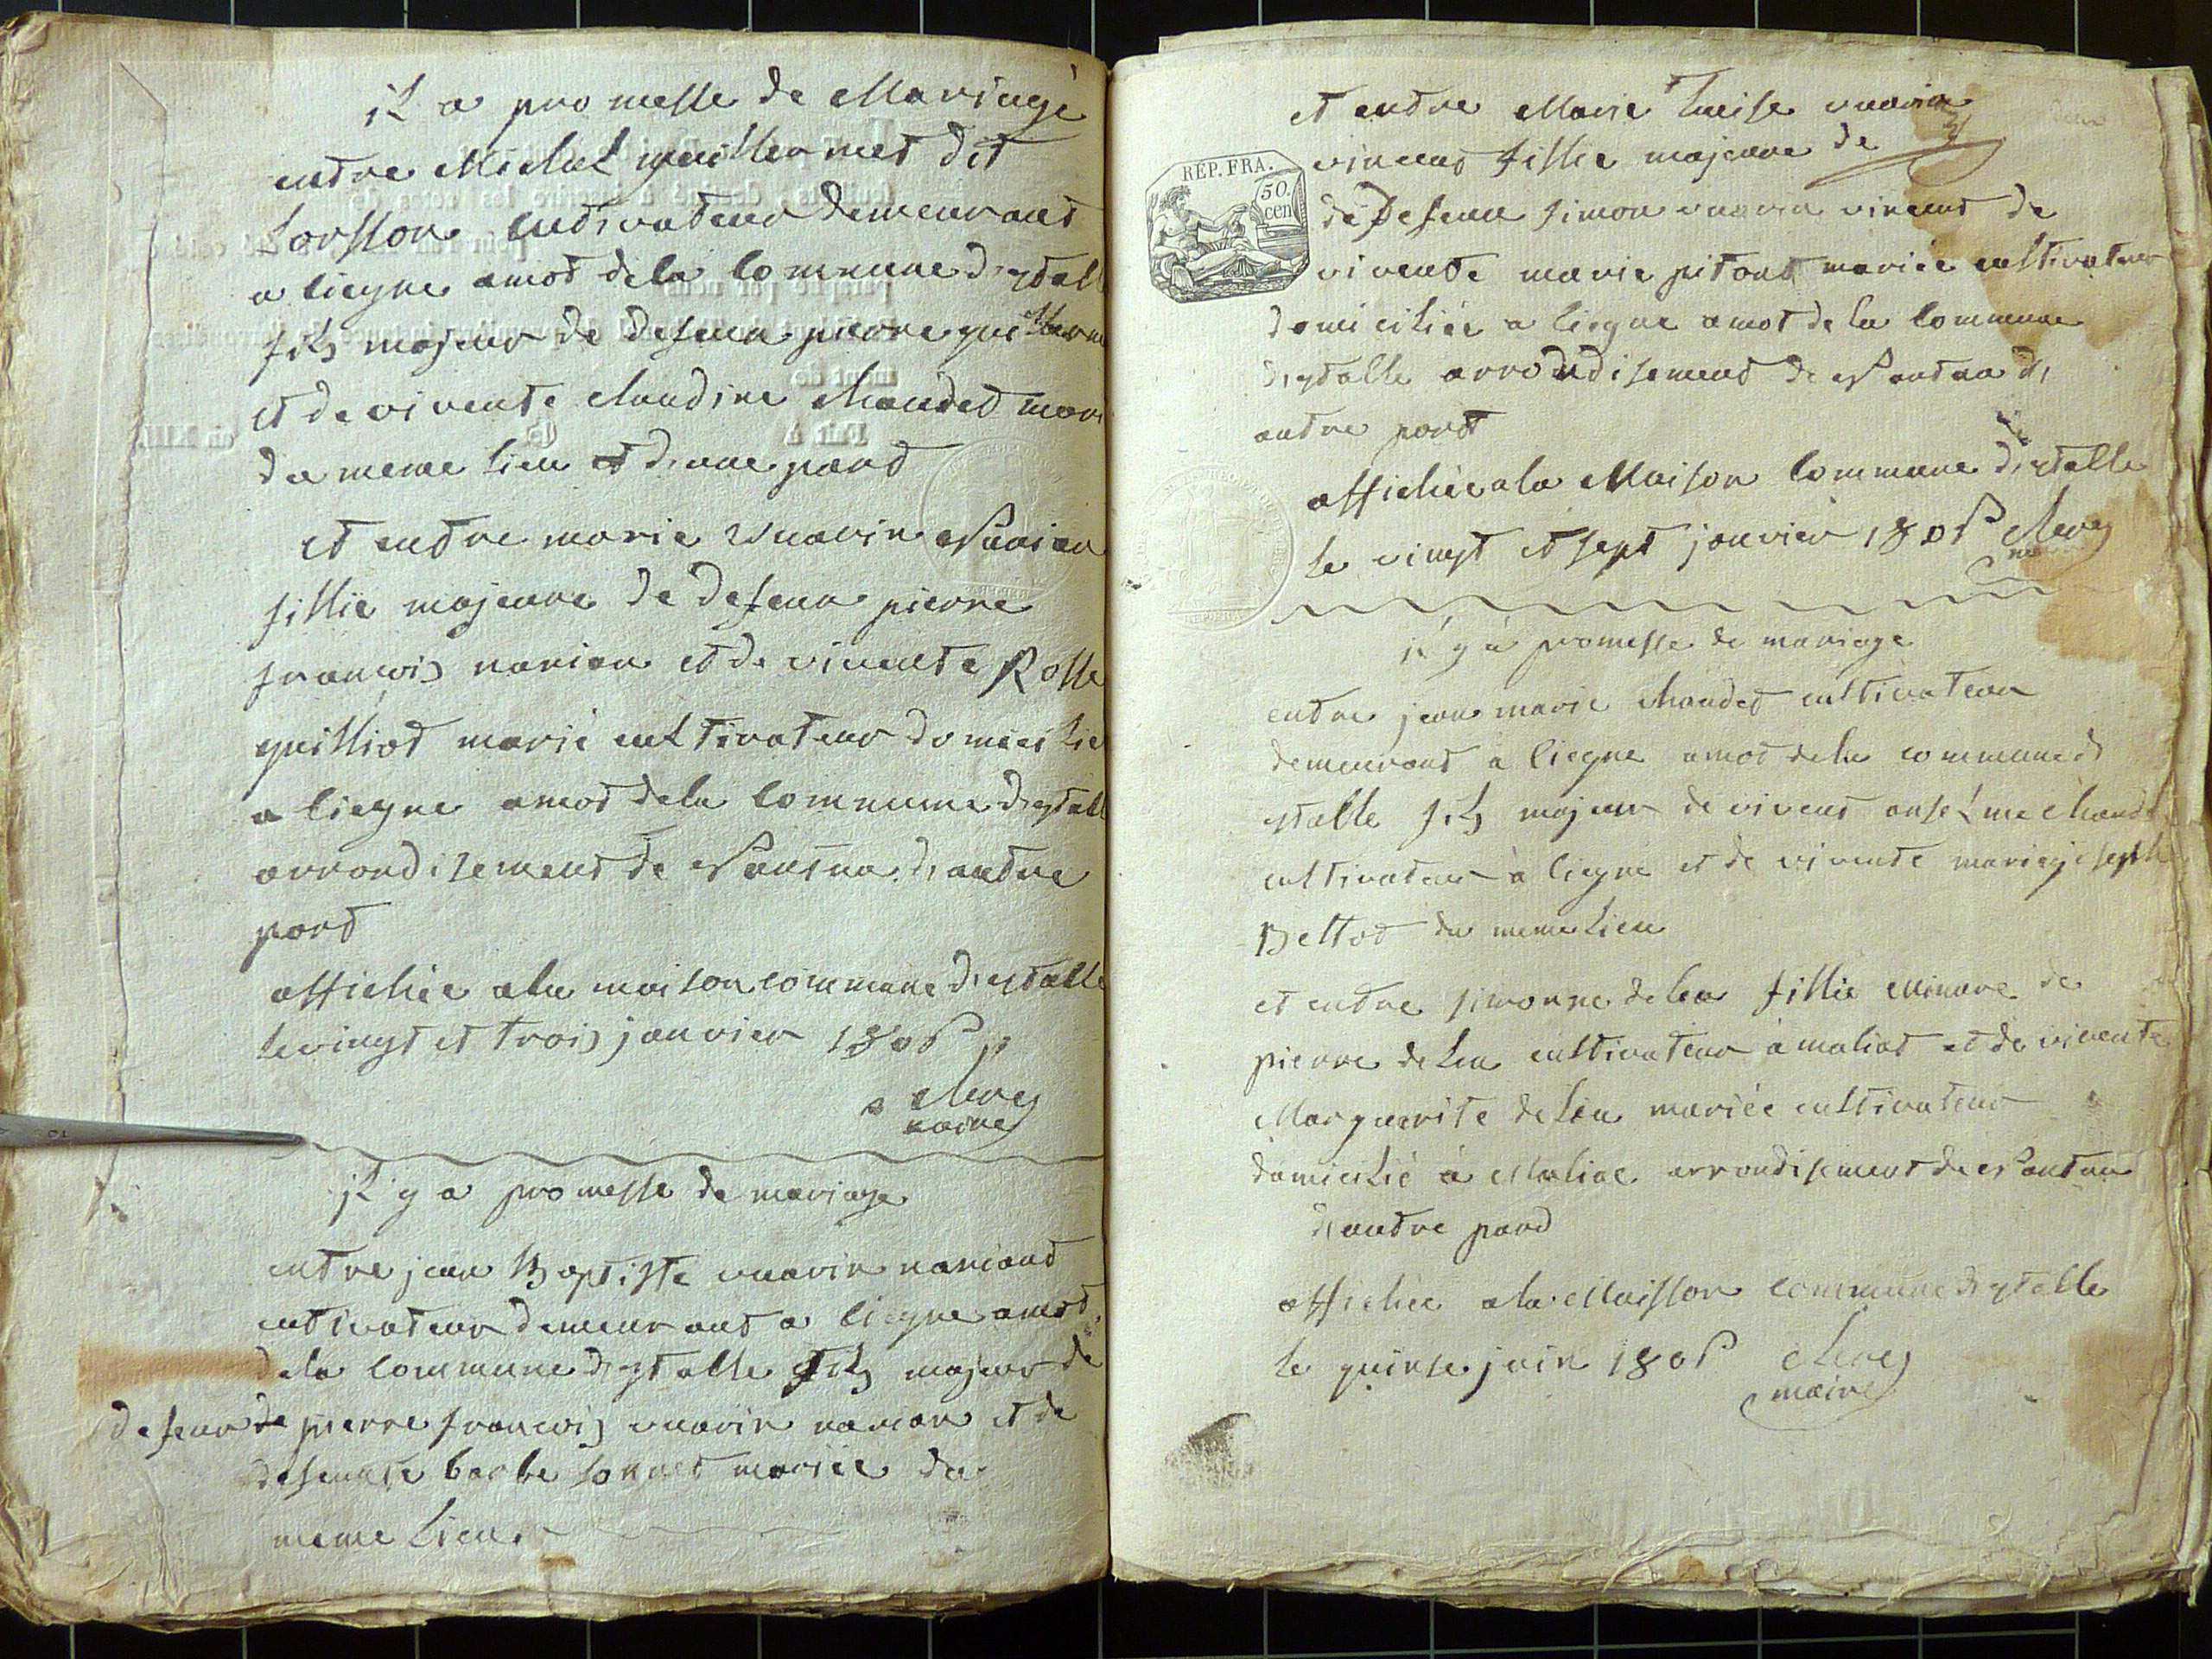 il a promesse de Mariage
entre Michel guillermet dit
Lorsson cutivateur demeurant
a liegne amot dela Commune distall
fils majeur de defeun pierre guillerm
et de vivente claudine Chaudet mari
du meme lieu et d'une pard
et entre marie vuarin
fillie majeure de defeun pierre
francois nanian et de vivente Rosse
guilliot marié cultivateur domicilié
a liegne amot dela Commune distall
arrondisement de Nantua d'autre
pard
affichée ala maison commune d'istalle
le vingt et trois janvier 1806
maire
il y a promesse de mariage
entre jean Baptiste vuarin naniand
cutivateur demeurant a liegne amot
dela Commune distalle fils majeur de
defeun de pierre francois vuarin nanian et de
defeunte barbe sonnet mariée du
meme lieu.
et entre Marie Luise vuarin
REP. FRA.
50.
cen
vincent fillie majeure de
de Defeun simon vuarin vincent de
vivente marie pitont mariée cultivateur
domiciliée a liegne amot de la Commune
distalle arrondisement de Nantua d'
autre pard
affichée ala Maison Commune distalle
le vingt et sept janvier 1806
il y a promesse de mariage
entre jean marie Chaudet cultivateur
demeurant a liegne amot dela commune d
istalle fils majeur de vivent anselme Chaud
cultivateur à liegne et de vivente marie joseph
Bettot du meme lieu
et entre simonne deleu fillie Minure de
pierre deleu cultivateur a maliat et de vivente
Marguerite deleu mariée cultivateur
domicilié à Maliac arrondisement de Nantua
d'autre pard
affichée ala Maisson commune distalle
le quinse juin 1806
maire